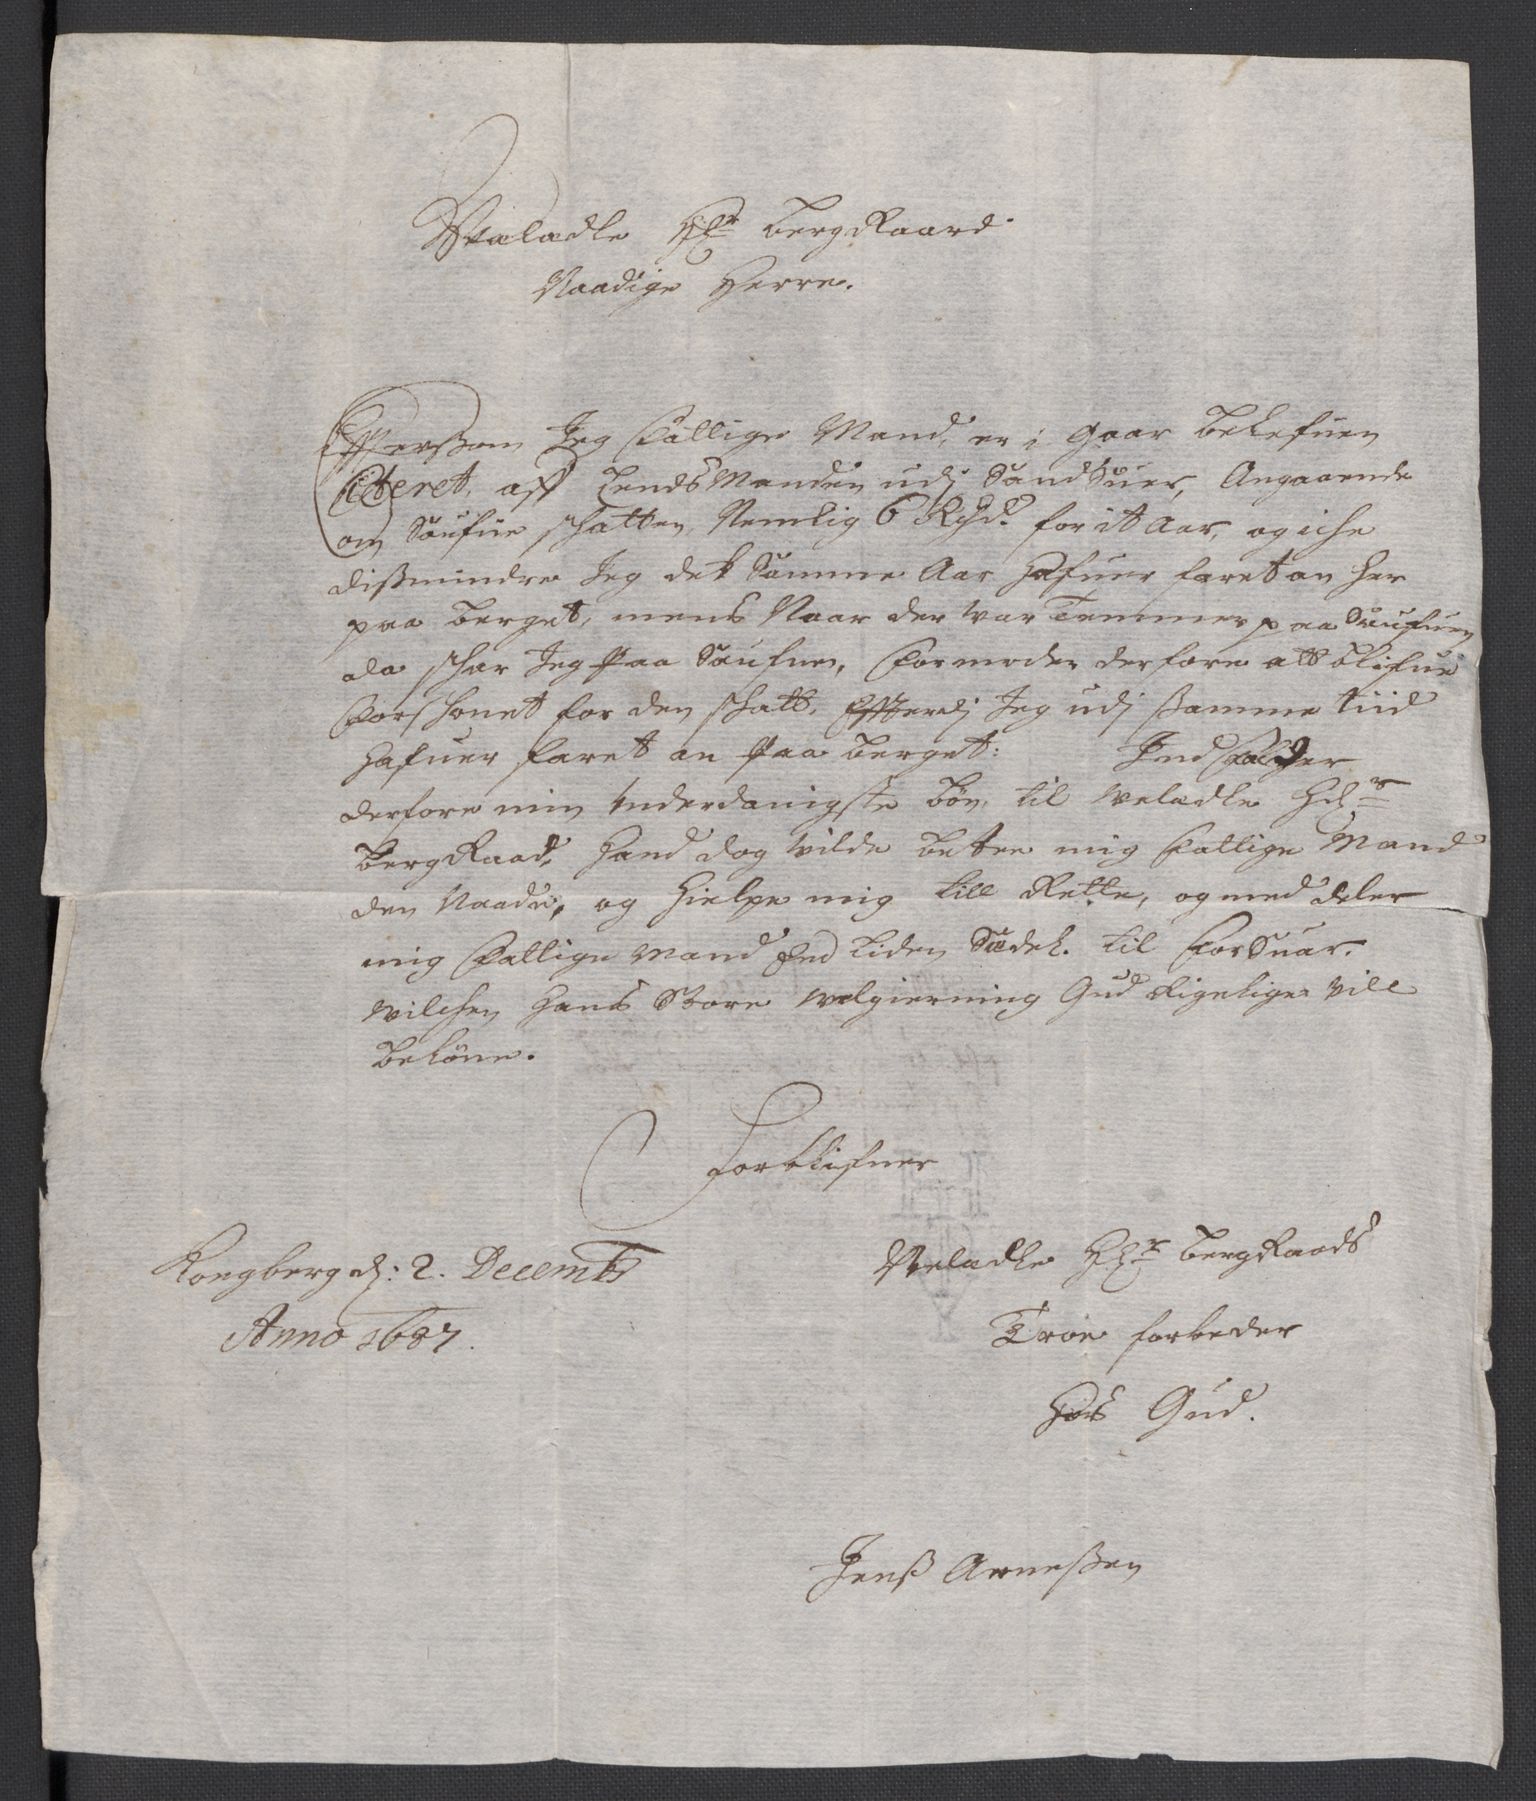 Weladle Hr: BergRaard
Naadige Herre.
Effterssom Jeg Fattige Mand, er i Gaar blefuen
Citeret, aff LendsManden udj SandSuer, Angaaende
om Saufue schatten, Nemlig 6 Rixdr for it Aar, og iche
dissmindre Jeg det Samme Aar hafuer faret an her
paa berget, mens Naar der war Temmer paa Saufuen
da schar Jeg Paa Saufuen, Formoder derfore att blifue
Forschonet for den schatt, Effterdj Jeg udj ssamme tiid
hafuer faret an Paa berget: Indfalder
derfore min Vnderdanigste bön, til weladle Hr:
BergRaad, hand dog wilde betee mig Fattige Mand
den Naade, og hielpe mig till Rette, og meddeler
mig Fattige Mand End liden Sædel. til ForSuar.
wilchen hans Store welgierning Gud Rigelige vill
belönne.
Forblifuer
Kongberg d: 2. Decembr
Anno 1687.
Weladle Hr: BergRaads
Troe forbeder
hos Gud.
Jenss Arnessen